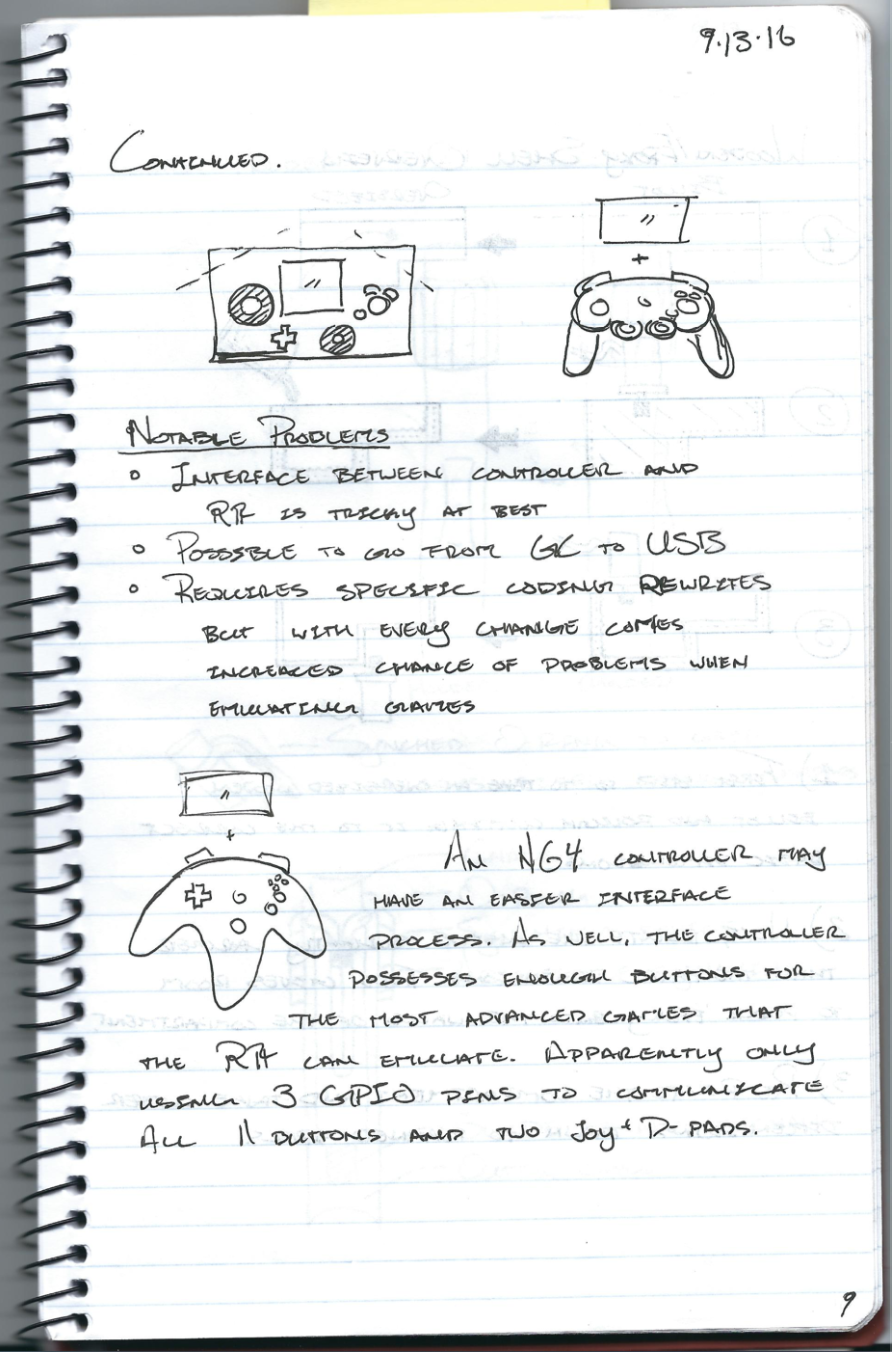 9.13.16
CONTINUED.
+
NOTABLE PROBLEMS
○ INTERFACE BETWEEN CONTROLLER AND
RPi IS TRICKY AT BEST
○ POSSIBLE TO GO FROM GC TO USB
○ REQUIRES SPECIFIC CODING REWRITES
BUT WITH EVERY CHANGE COMES
INCREASED CHANCE OF PROBLEMS WHEN
EMULATING GAMES
+
AN N64 CONTROLLER MAY
HAVE AN EASIER INTERFACE
PROCESS. AS WELL, THE CONTROLLER
POSSESSES ENOUGH BUTTONS FOR
THE MOST ADVANCED GAMES THAT
THE RPi CAN EMULATE. APPARENTLY ONLY
USING 3 GPIO PINS TO COMMUNICATE
ALL 11 BUTTONS AND TWO Joy + D-PADS.
9